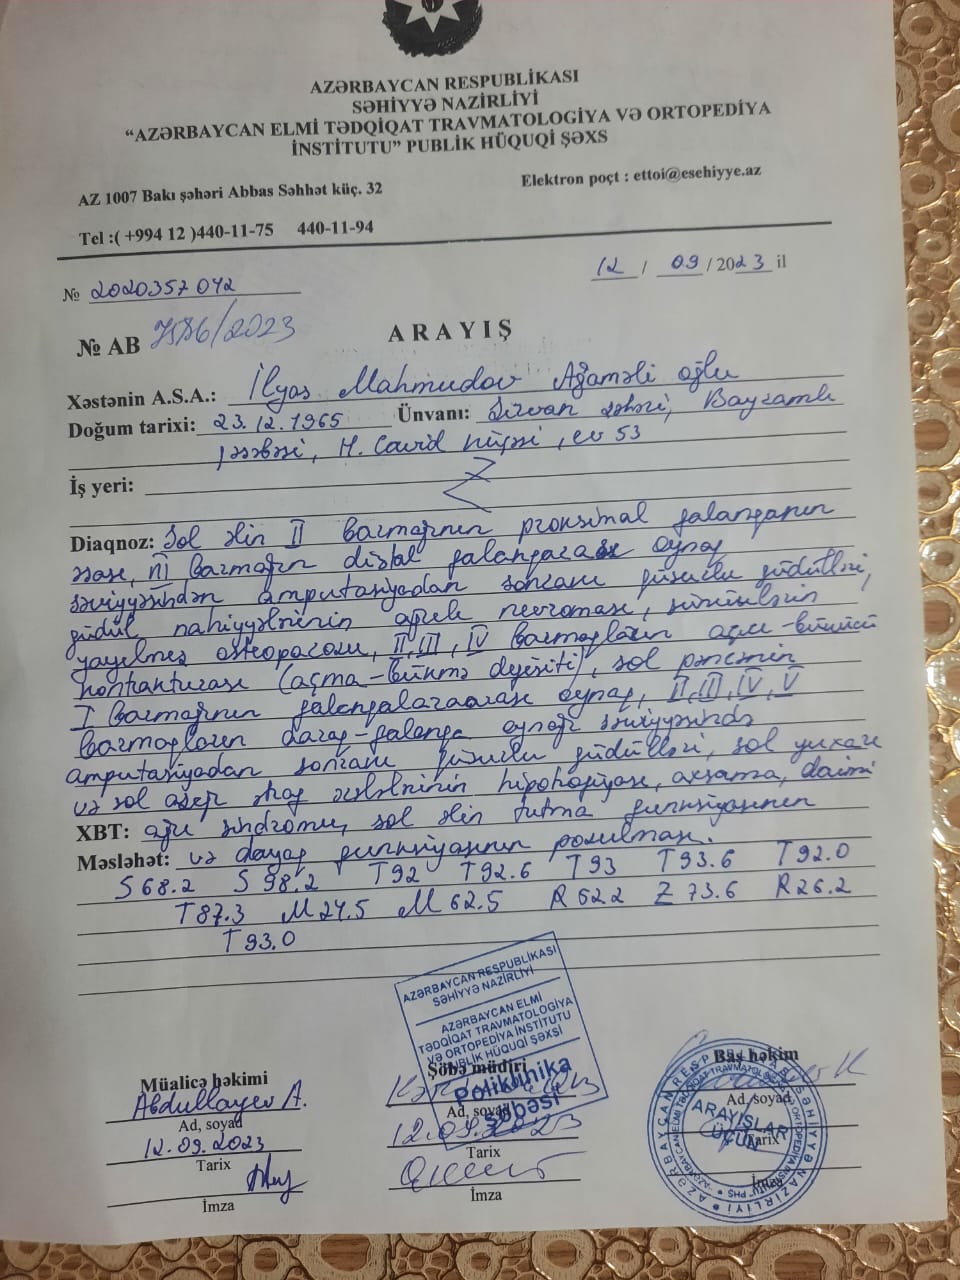 AZƏRBAYCAN RESPUBLİKASI
SƏHİYYƏ NAZİRLİYİ
“AZƏRBAYCAN ELMİ TƏDQİQAT TRAVMATOLOGİYA VƏ ORTOPEDİYA
İNSTİTUTU” PUBLİK HÜQUQİ ŞƏXS
AZ 1007 Bakı şəhəri Abbas Səhhət küç. 32
Elektron poçt : ettoi@esehiyye.az
Tel :( +994 12 )440-11-75 440-11-94
№ 2020357042
12 / 09 / 2023 il
№ AB 7586/2023
ARAYIŞ
Xəstənin A.S.A.: İlyas Mahmudov Ağaməli oğlu
Doğum tarixi: 23.12.1965 Ünvanı: Şirvan şəhəri, Bayramlı
qəsəbəsi, H. Cavid küçəsi, ev 53
İş yeri:
Diaqnoz: Sol əlin II barmağının proksimal falanqanın
əsası, III barmağın distal falanqaarası oynaq
səviyyəsindən amputasiyadan sonrakı qüsurlu güdülləri,
güdül nahiyyələrinin ağrılı nevroması, sümüklərin
yayılmış osteoparozu, II, III, IV barmaqların açıcı-bükücü
kontrakturası (açma-bükmə defisiti), sol pəncənin
I barmağının falanqalararası oynaq, II, III, IV, V
barmaqların daraq-falanqa oynağı səviyyəsində
amputasiyadan sonrakı qüsurlu güdülləri, sol yuxarı
və sol aşağı ətraf əzələlərinin hipotrofiyası, axsama, daimi
XBT: ağrı sindromu, sol əlin tutma funksiyasının
Məsləhət: və dayaq funksiyasının pozulması.
S68.2 S98.2 T92 T92.6 T93 T93.6 T92.0
T87.3 M24.5 M62.5 R52.2 Z73.6 R26.2
T93.0
AZƏRBAYCAN RESPUBLİKASI
SƏHİYYƏ NAZİRLİYİ
AZƏRBAYCAN ELMİ
TƏDQİQAT TRAVMATOLOGİYA
VƏ ORTOPEDİYA İNSTİTUTU
PUBLİK HÜQUQİ ŞƏXSİ
Poliklinika
şöbəsi
Müalicə həkimi
Abdullayev A.
Ad, soyad
12.09.2023
Tarix
İmza
Şöbə müdiri
Ad, soyad
12.09.2023
Tarix
İmza
Baş həkim
Ad, soyad
Tarix
İmza
ARAYIŞLAR
ÜÇÜN